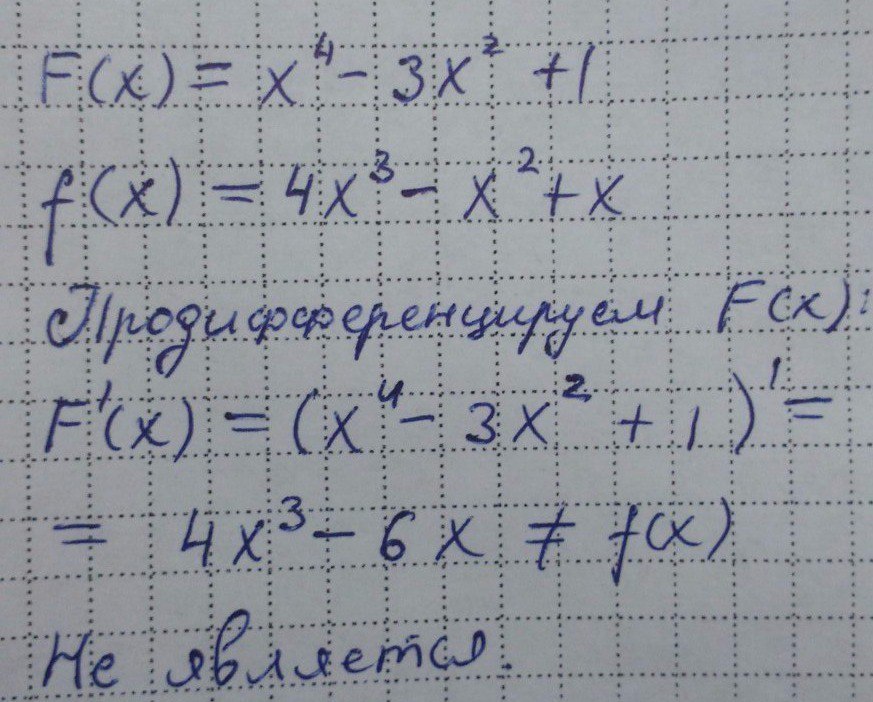 F(x) = x⁴ - 3x² + 1
f(x) = 4x³ - x² + x
Продифференцируем F(x):
F'(x) = (x⁴ - 3x² + 1)' =
= 4x³ - 6x ≠ f(x)
Не является.